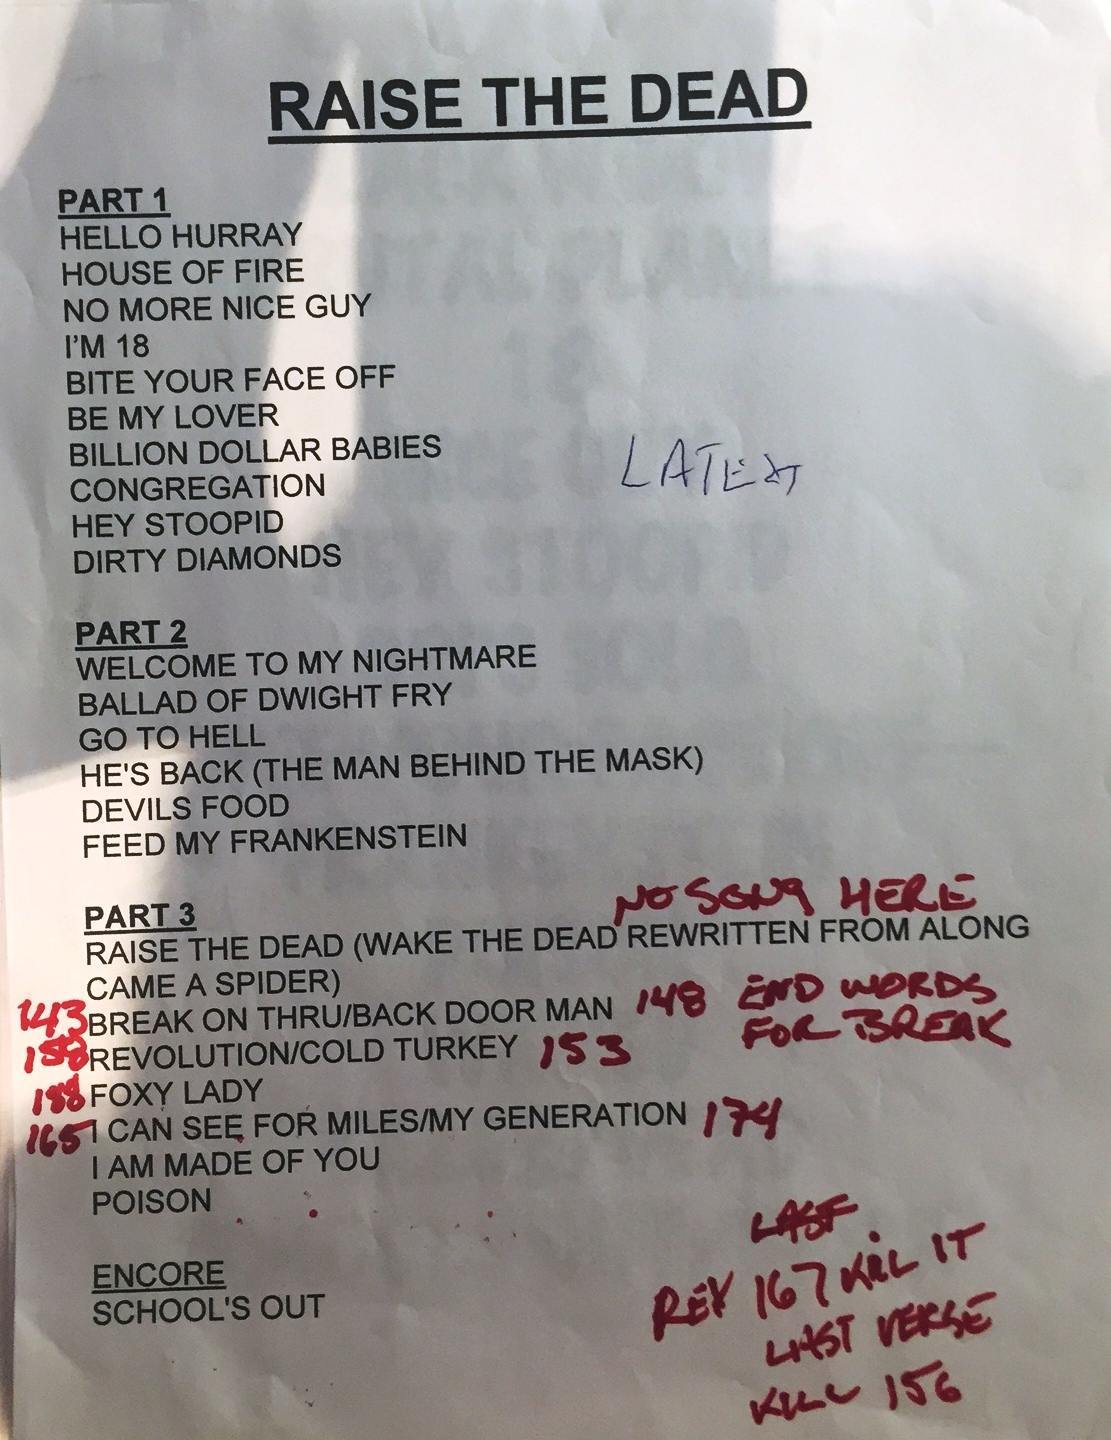 RAISE THE DEAD
PART 1
HELLO HURRAY
HOUSE OF FIRE
NO MORE NICE GUY
I'M 18
BITE YOUR FACE OFF
BE MY LOVER
BILLION DOLLAR BABIES
CONGREGATION
LATEST
HEY STOOPID
DIRTY DIAMONDS
PART 2
WELCOME TO MY NIGHTMARE
BALLAD OF DWIGHT FRY
GO TO HELL
HE'S BACK (THE MAN BEHIND THE MASK)
DEVILS FOOD
FEED MY FRANKENSTEIN
NO SONG HERE
PART 3
RAISE THE DEAD (WAKE THE DEAD REWRITTEN FROM ALONG
CAME A SPIDER)
143 BREAK ON THRU/BACK DOOR MAN 148 END WORDS
FOR BREAK
REVOLUTION/COLD TURKEY 153
FOXY LADY
165 I CAN SEE FOR MILES/MY GENERATION 174
I AM MADE OF YOU
POISON
LAST
ENCORE
SCHOOL'S OUT
REV 167 KILL IT
LAST VERSE
KILL 156